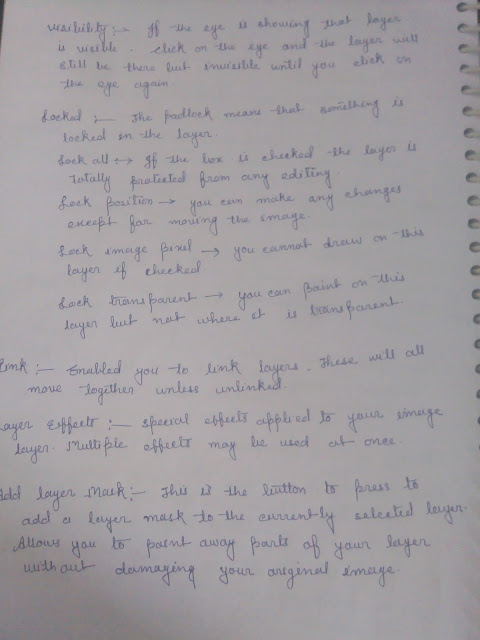 Visibility :- If the eye is showing that layer
is visible. Click on the eye and the layer will
still be there but invisible until you click on
the eye again.
Locked :- The padlock means that something is
locked on the layer.
Lock all → If the box is checked the layer is
totally protected from any editing.
Lock position → you can make any changes
except for moving the image.
Lock image pixel → you cannot draw on this
layer if checked.
Lock transparent → you can paint on this
layer but not where it is transparent.
Link :- Enabled you to link layers. These will all
move together unless unlinked.
Layer Effects :- special effects applied to your image
layer. Multiple effects may be used at once.
Add layer Mask :- This is the button to press to
add a layer mask to the currently selected layer.
Allows you to paint away parts of your layer
without damaging your original image.